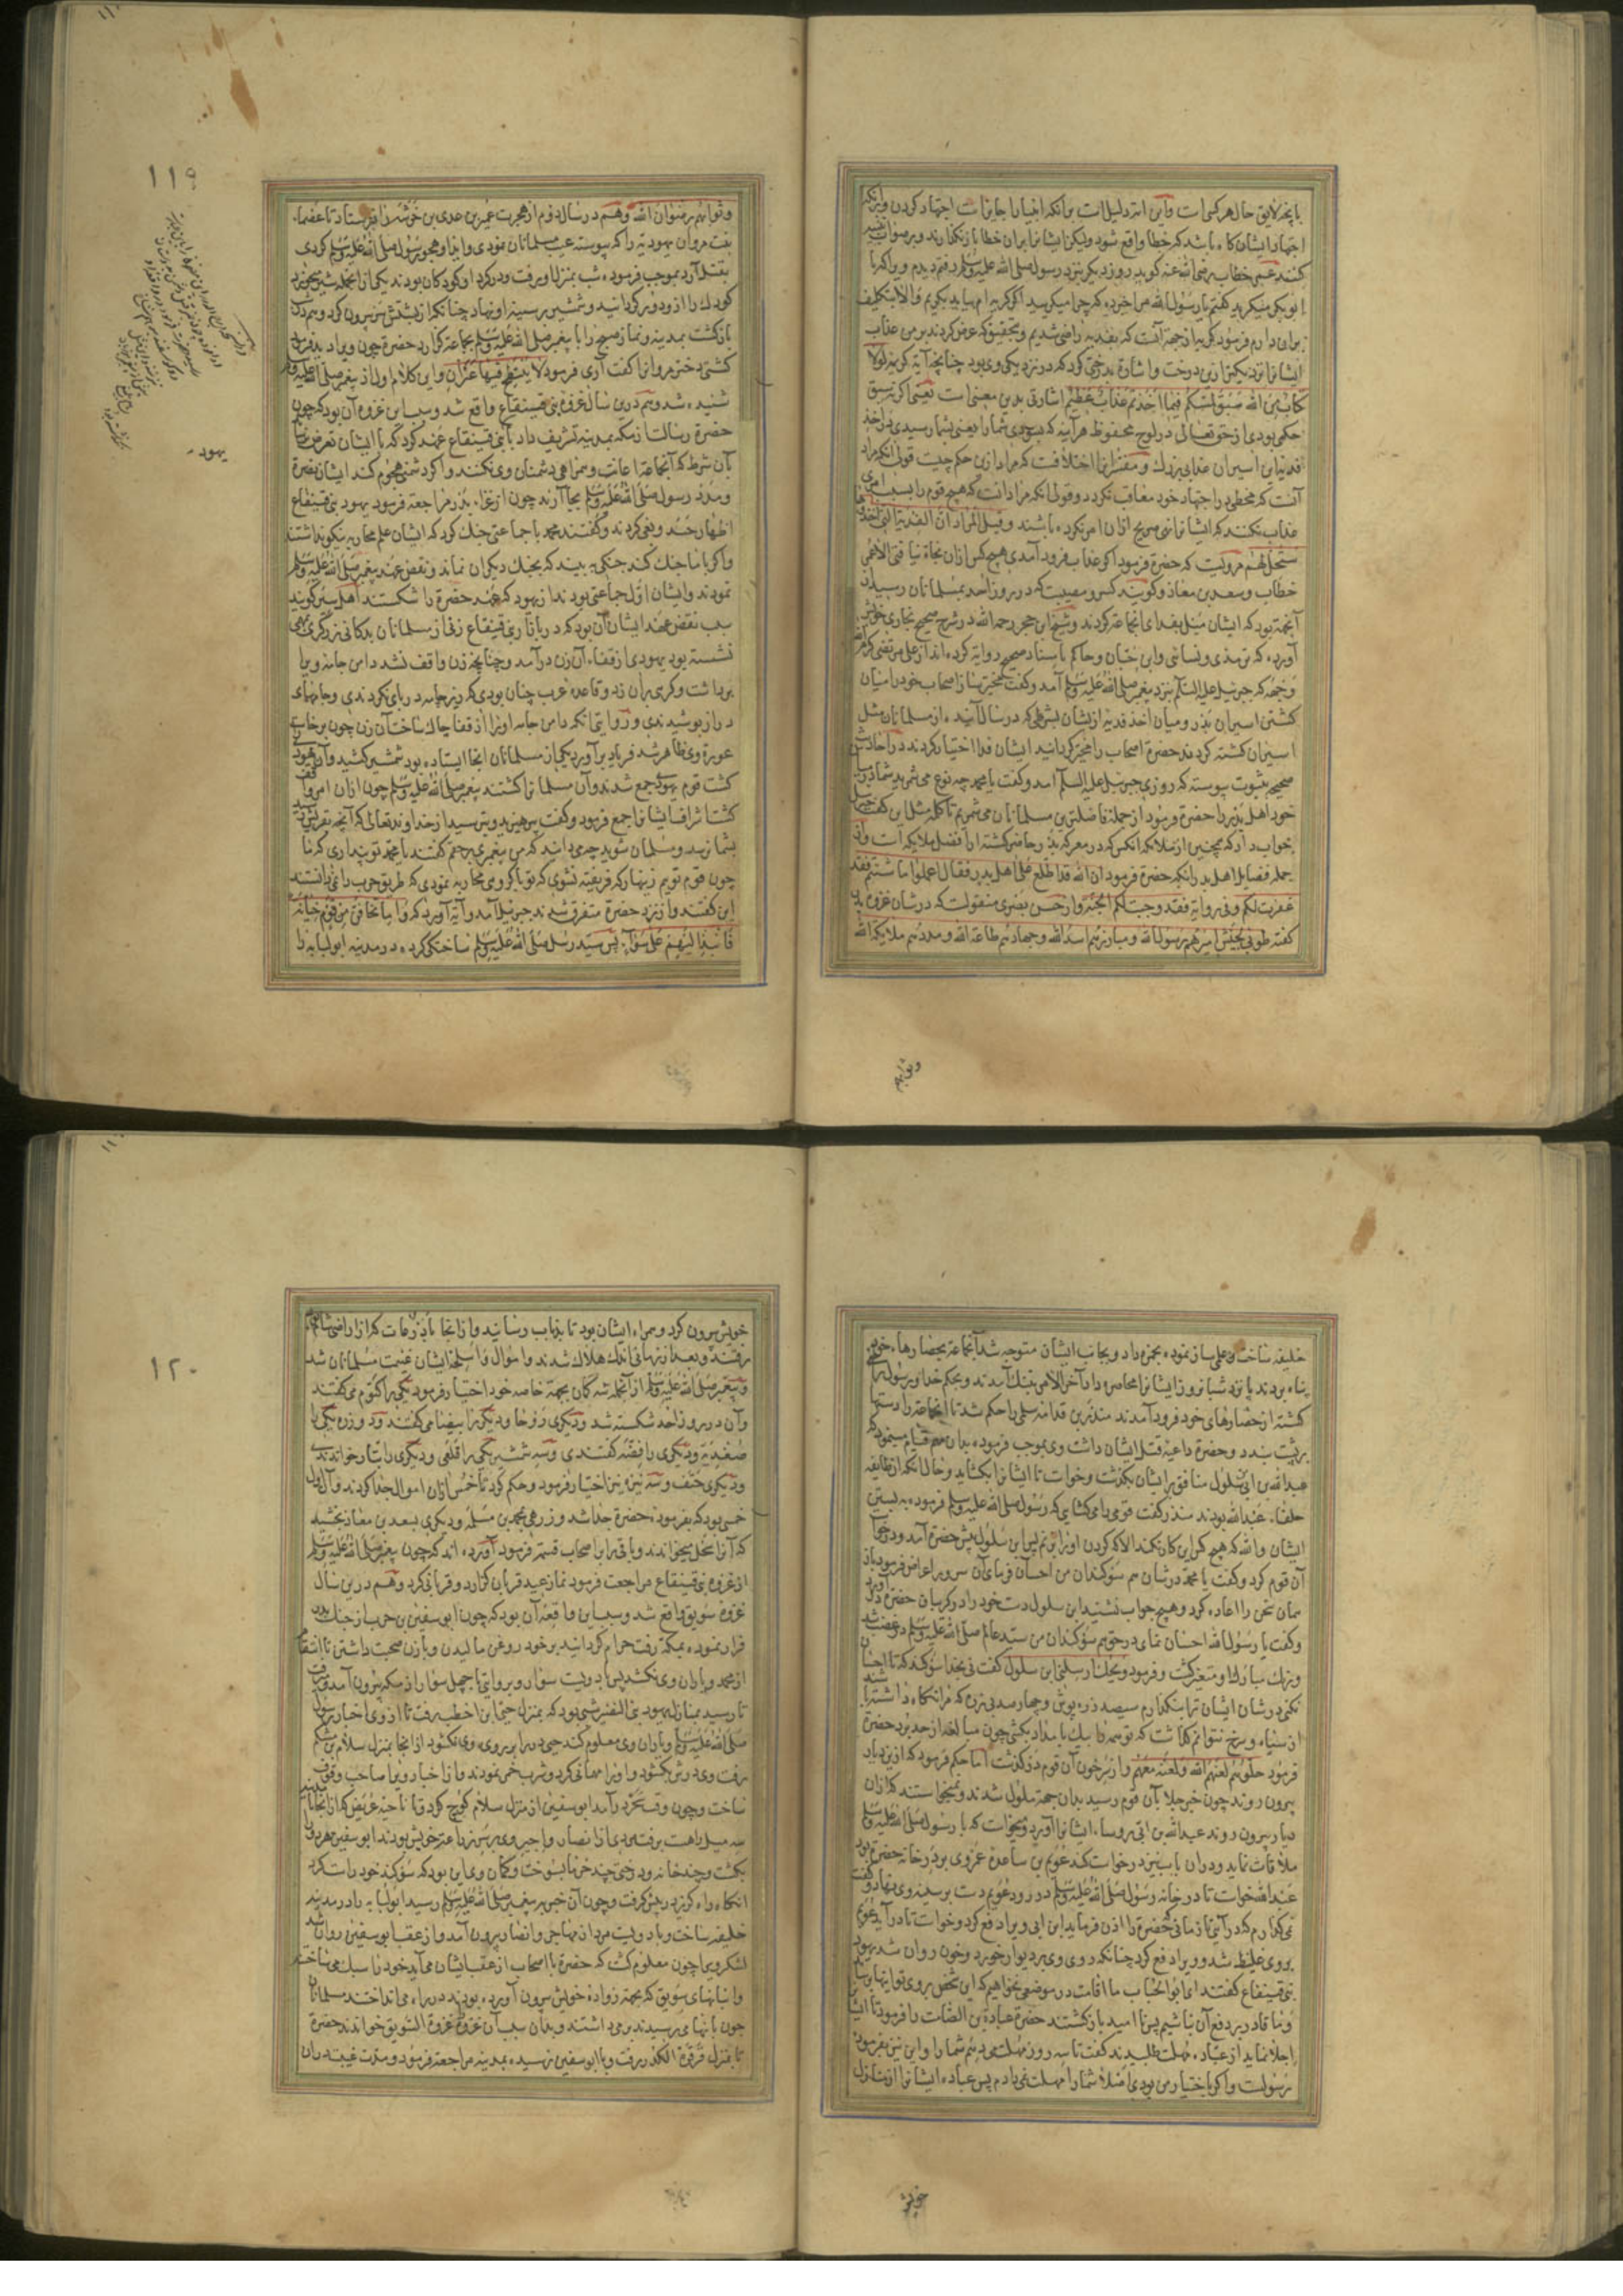 با بچه لایق حال هر کس است و این
اجتهاد ایشان گاه باشد که خطا واقع شود ولیکن ایشانرا بران خطا باز نگذارند و بر صواب
کنند عمر خطاب رضی الله عنه کوید روز دیکر بنزد رسول صلی الله علیه وسلم رفتم دیدم ویرا که با
ابو بکر میکریید کفتم یا رسول الله مرا خبر ده که چرا میکریید اکر کریه ام بیاید بکریم
برای دارم فرمود کریه از جهة آنست که بفدیه راضی شدیم و بتحقیق که عرض کردند بر من عذاب
ایشانرا نزدیکتر ازین درخت و اشارة بدرختی کرد که در نزدیکی وی بود چنانچه آیة کریمه لولا
کتاب من الله سبق لمسکم فیما اخذتم عذاب عظیم اشارتی بدین معنی است یعنی اکر نه سبق
حکمی بودی از حق تعالی در لوح محفوظ هر آینه که
فدیه این اسیران عذابی بزرك و مفسرانرا اختلافست که مراد ازین حکم چیست قولی آنکه مراد
آنست که مخطی در اجتهاد خود معاقب نکردد و قولی آنکه مراد آنست که هیچ قوم را بسبب امری
عذاب نکنند که ایشانرا نهی صریح ازان امر نکرده باشند و قیل المراد ان الفدیة التی اخذوها
ستحل لهم مرویست که حضرة فرمود اکر عذاب فرود آمدی هیچکس ازان نجاة نیافتی الا عمر
خطاب و سعد بن معاذ و کویند کسر و مصیبت که در روز احد بمسلمانان رسید از
آنجهة بود که ایشان میل بفدای آنجماعة کردند و شیخ ابن حجر رحمه الله در شرح صحیح بخاری خویش
آورده که ترمذی و نسائی و ابن حبان و حاکم باسناد صحیح روایة کرده اند از علی مرتضی کرم الله
وجهه که جبرئیل علیه السلام بنزد پیغمبر صلی الله علیه وسلم آمد و کفت مخیر ساز اصحاب خود را میان
کشتن اسیران بدر و میان اخذ فدیه از یشان بشرطی که در سال آینده از مسلمانان مثل
اسیران کشته کردند حضرة اصحاب را مخیر کردانید ایشان فدا اختیار کردند در احادیث
صحیحه بثبوت پیوسته که روزی جبرئیل علیه السلام آمد و کفت یا محمد چه نوع می شمرید شما در میان
خود اهل بدر را حضرة فرمود از جمله فاضلترین مسلمانان می شمریم یا کلمه مثل این کفت جبرئیل
جواب داد که همچنین از ملائکه آنکس که در معرکه بدر حاضر کشته از افضل ملایکه است و از
جمله فضایل اهل بدر آنکه حضرة فرمود ان الله قد اطلع علی اهل بدر فقال اعملوا ما شئتم فقد
غفرت لکم و فی روایة فقد وجبت لکم الجنة و از حسن بصری منقولست که در شان غزوه بدر
کفته طوبی لجیش امیرهم رسول الله و مبارزهم اسد الله و جهادهم طاعة الله و مددهم ملایکة الله
وثوابهم
وثوابهم رضوان الله و هم در سال دوم از هجرت عمیر بن عدی بن خرشه را فرستاد تا عصماء
بنت مروان یهودیه را که پیوسته عیب مسلمانان نمودی و ایذا و هجو رسول صلی الله علیه وسلم کردی
بقتل آرد بموجب فرموده شب بمنزل او رفت و در کرد او کودکان بودند یکی از آنجمله شیر میخورد
کودك را ازو دور کردانید و شمشیر بر سینه او نهاد چنانکه از پشتش بیرون کرد و هم در شب
بازکشت بمدینه و نماز صبح را با پیغمبر صلی الله علیه وسلم بجماعة کزارد حضرة چون ویرا دید فرمود
کشتی دختر مروانرا کفت آری فرمود لا ینتطح فیها عنزان و این کلام اول از پیغمبر صلی الله علیه وسلم
شنیده شد و هم درین سال غزوه بنی قینقاع واقع شد و سبب این غزوه آن بود که چون
حضرة رسالت از مکه بمدینه تشریف داد با بنی قینقاع عهد کرد که با ایشان تعرض نرساند
بآن شرط که آنجماعة اعانت و همراهی دشمنان وی نکنند و اکر دشمنی هجوم کند ایشان نصرة
و مدد رسول صلی الله علیه وسلم بجا آرند چون از غزاء بدر مراجعة فرمود یهود بنی قینقاع
اظهار حسد و بغی کردند و کفتند محمد با جماعتی جنك کرد که ایشان علم محاربه نیکو نداشتند
و اکر با ما جنك کند جنکی به بیند که بجنك دیکران نماند و نقض عهد پیغمبر صلی الله علیه وسلم
نمودند و ایشان اول جماعتی بودند از یهود که عهد حضرة را شکستند اهل سیر کویند
سبب نقض عهد ایشان آن بود که در بازار بنی قینقاع زنی از مسلمانان بدکانی زرکری
نشسته بود یهودی از قفاء آن زن درآمد و چنانچه زن واقف نشد دامن جامه ویرا
برداشت و کرهی بران زد و قاعده عرب چنان بودی که زیر جامه در پای نکردندی و جامهای
دراز پوشیدندی و روایتی آنکه دامن جامه او را از قفا چاك ساخت آن زن چون برخاست
عورة وی ظاهر شد فریاد برآورد یکی از مسلمانان آنجا ایستاده بود شمشیر کشید و آن یهود
کشت قوم یهود جمع شدند و آن مسلمانرا کشتند پیغمبر صلی الله علیه وسلم چون ازان امر واقف
کشت اشراف ایشانرا جمع فرمود و کفت بپرهیزید و بترسید از خداوند تعالی که آنچه بقریش رسید
بشما نرسد و مسلمان شوید چه می دانید که من پیغمبری برحقم کفتند یا محمد تو پنداری که ما
چون قوم توییم زینهار که فریفته نشوی که تو با کروهی محاربه نمودی که طریق حرب را نمی دانستند
این کفتند و از نزد حضرة متفرق شدند جبرئیل آمد و آیة آورد که و اما تخافن من قوم خیانة
فانبذ الیهم علی سواء پس سید رسل صلی الله علیه وسلم ساختکی کرده در مدینه ابولبابه را
یهود
١١٩
خلیفه ساخت و علمی ساز نموده بحمزه داد و بجانب ایشان متوجه شد آنجماعة بحصارهاء خویش
پناه بردند پانزده شبانروز ایشانرا محاصره داد آخر الامر بتنك آمدند و بحکم خدا و رسول راضی
کشته از حصارهای خود فرود آمدند منذر بن قدامه سلمی را حکم شد تا آنجماعة را دستها
بر پشت بندد و حضرة داعیه قتل ایشان داشت وی بموجب فرموده بدان مهم قیام مینمود که
عبدالله بن ابی سلول منافق بر ایشان بکذشت و خواست تا ایشانرا بکشاید و حال آنکه از طایفه
حلفاء عبدالله بودند منذر کفت قومی را می کشایی که رسول صلی الله علیه وسلم فرموده به بستن
ایشان والله که هیچ کس این کار نکند الا که کردن او را بزنم پس ابن سلول پیش حضرة آمد و درخواست
آن قوم کرد و کفت یا محمد در شان هم سوکندان من احسان فرمای آن سرور اعراض فرمود باز
همان سخن را اعاده کرد و هیچ جواب نشنید ابن سلول دست خود را در کریبان حضرة
و کفت یا رسول الله احسان نمای در حق هم سوکندان من سید عالم صلی الله علیه وسلم در غضب شد
و رنك مبارك او متغیر کشت و فرمود ویحك ارسلنی ابن سلول کفت نی بخدا سوکند که تا احسان
نکنی در شان ایشان ترا نکذارم سیصد زره پوش و چهارصد بی زره که مرا نکاه داشته باشند
از سیاه و سرخ نتوانم کذاشت که تو همه را بیك بامداد بکشی چون مبالغه از حد برد حضرة
فرمود خلوهم لعنهم الله و لعنه معهم و از سر خون آن قوم درکذشت اما حکم فرمود که ازین دیار
بیرون روند چون خبر جلا بآن قوم رسید بدان جهة ملول شدند و نمیخواستند که ازان
دیار بیرون روند عبدالله بن ابی رؤساء ایشانرا آورد و میخواست که با رسول صلی الله علیه وسلم
ملاقات نماید و دران باب نیز درخواست کند عویم بن ساعده عمروی بر در خانه حضرة بود
عبدالله خواست تا در خانه رسول صلی الله علیه وسلم در رود عویم دست بر سینه وی نهاد و کفت
نمی کذارم که در آیی تا زمانی که حضرة را اذن فرماید ابن ابی ویرا دفع کرد و خواست تا درآید عویم
بر وی غلیظ شد و ویرا دفع کرد چنانکه روی وی بر دیوار خورد و خون روان شد یهود
بنی قینقاع کفتند ای ابوالحباب ما اقامت در موضعی نخواهیم که این شخص بر روی تو اینها برساند
و ما قادر بر دفع آن نباشیم پس نا امید بازکشتند حضرة عبادة بن الصامت را فرمود تا ایشانرا
اجلا نماید از عباده مهلت طلبیدند کفت تا سه روز مهلت میدهم شما را و این نیز بفرموده
رسولست و اکر باختیار من بودی اصلا شما را مهلت نمی دادم پس عباده ایشانرا از منازل
خویش
خویش بیرون کرد و همراه ایشان بود تا بذباب رسانید و از آنجا باذرعات که از اراضی شام است
رفتند و بعد از زمانی اندك هلاك شدند و اموال و اسلحه ایشان غنیمت مسلمانان شد
و پیغمبر صلی الله علیه وسلم از آنجمله سه کمان بجهة خاصه خود اختیار فرمود یکی را کتوم می کفتند
و آن در روز احد شکسته شد و دیکری روحا و دیکر را بیضا می کفتند و دو زره یکی را
صغدیه و دیکری را فضه کفتندی و سه شمشیر یکی را قلعی و دیکری را بتار خواندندی
و دیکری حتف و سه نیزه نیز اختیار فرمود و حکم کرد تا خمس ازان اموال جدا کردند و آن اول
خمسی بود که بفرموده حضرة جدا شد و زرهی بمحمد بن مسلمه و دیکری بسعد بن معاذ بخشید
که آنرا سخل میخواندند و باقی را بر اصحاب قسمة فرمود آورده اند که چون پیغمبر صلی الله علیه وسلم
از غزوه بنی قینقاع مراجعت فرمود نماز عید قربان کزارد و قربانی کرد و هم درین سال
غزوه سویق واقع شد و سبب این واقعه آن بود که چون ابوسفین بن حرب از جنك بدر
فرار نموده بمکه رفت حرام کردانید بر خود روغن مالیدن و با زن صحبت داشتن تا انتقام
از محمد و یاران وی نکشد پس با دویست سوار و بروایتی با چهل سوار از مکه بیرون آمد
تا رسید بمنازل یهود بنی النضیر شبی بود که بمنزل حیی بن اخطب رفت تا از وی اخبار رسول
صلی الله علیه وسلم و یاران وی معلوم کند حیی در را بر روی وی نکشود از آنجا بمنزل سلام بن مشکم
رفت وی در ش بکشود و او را مهمانی کرد و شرب خمر نمودند و از اخبار ویرا صاحب وقوف
ساخت و چون وقت سحر درآمد ابوسفین از منزل سلام کوچ کرد و تا ناحیه عریض که از آنجا تا مدینه
سه میل راهست برفت مردی از انصار و اجیر وی بر سر زراعة خویش بودند ابوسفین هر دو را
بکشت و چند خانه و درختی چند خرما بسوخت و کمان وی این بود که سوکند خود راست کرد
آنکاه راه کریز در پیش کرفت و چون آن خبر به پیغمبر صلی الله علیه وسلم رسید ابولبابه را در مدینه
خلیفه ساخت و با دویست مرد از مهاجر و انصار بیرون آمد و از عقب ابوسفین روان شد
لشکر ویرا چون معلوم کشت که حضرة با اصحاب از عقب ایشان می آید خود را سبك می ساختند
و انبانهای سویق که بجهة زواده خویش بیرون آورده بودند در راه می انداختند مسلمانان
چون بآنها می رسیدند بر می داشتند و بدان سبب آن غزوه غزوة السویق خواندند حضرة
تا بمنزل قرقرة الکدر برفت و بابوسفین نرسیده بمدینه مراجعة فرمود و مدت غیبت دران
١٢٠